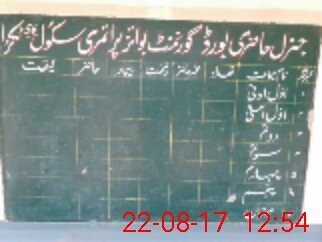 جنرل حاضری بورڈ گورنمنٹ بوائز پرائمری سکول
نام جماعت تعداد غیر حاضر رخصت بیمار حاضر کیفیت
اول ادنیٰ
اول اعلیٰ
دوئم
سوئم
چہارم
پنجم
22-08-17 12:54